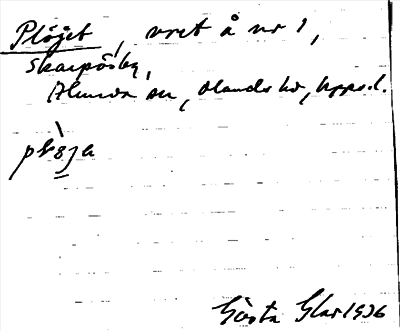 Plöjet, vret å nr 1,
Skarpösby,
Alunda sn, Olands hd, Upps.l.
plöja
Gösta Glas 1936